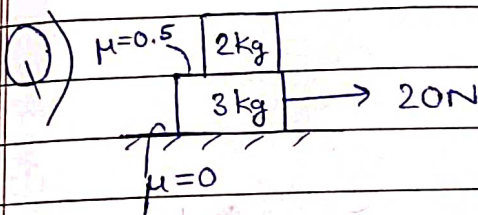 Q) μ=0.5 2kg
3kg 20N
μ=0